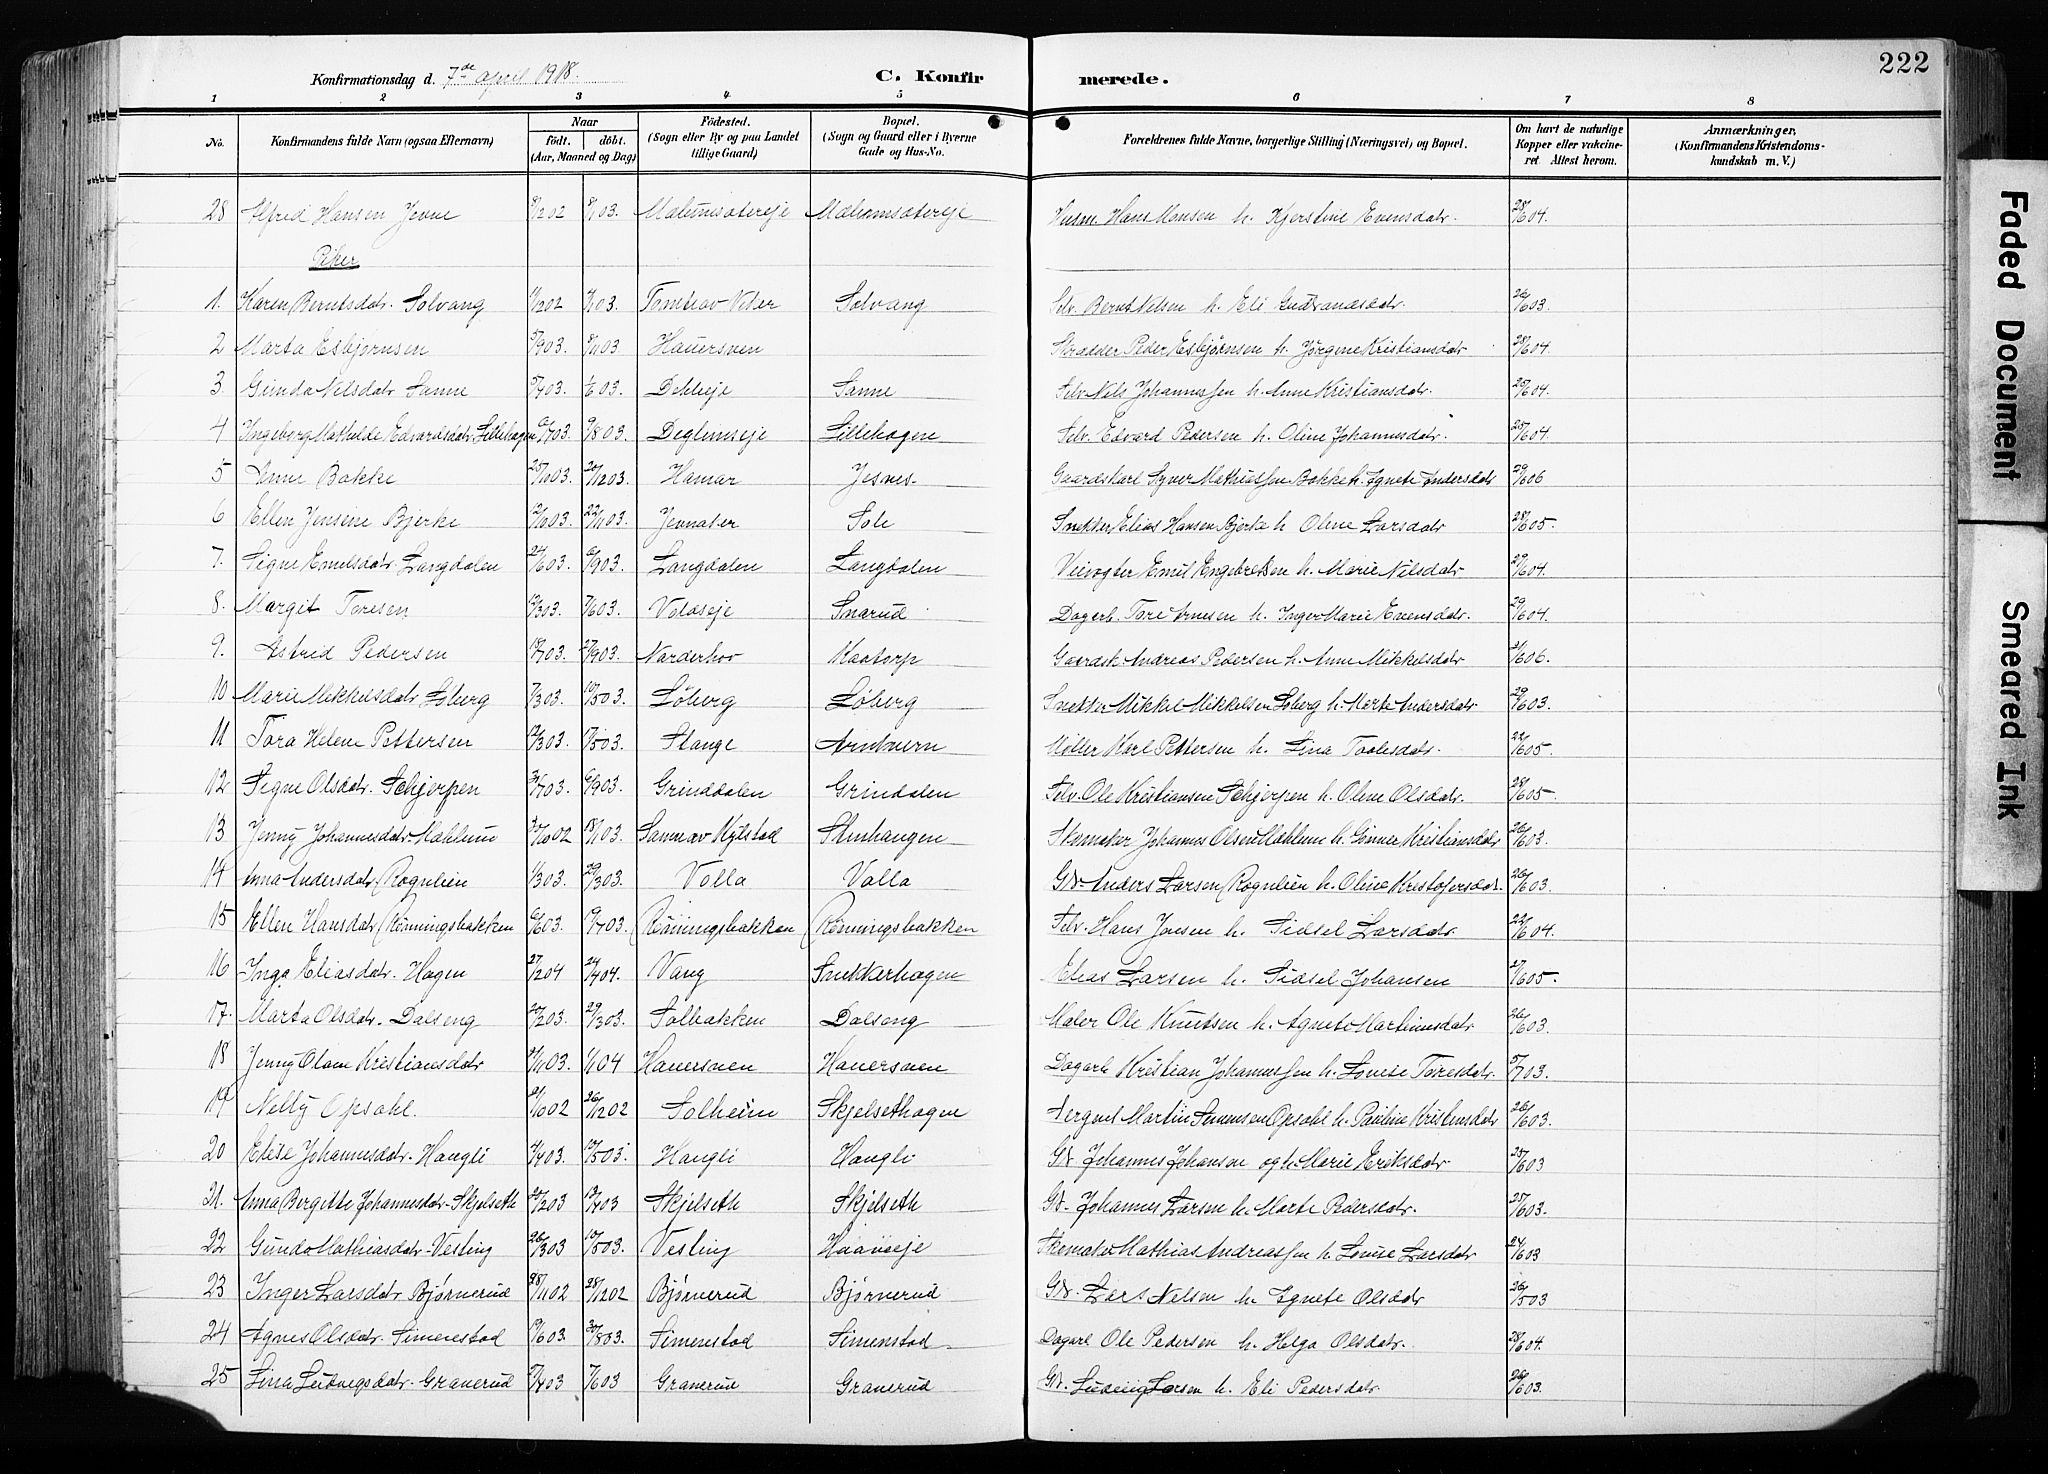 222
Konfirmationsdag d. 7de april 1918.
C. Konfirmerede.
1 2 3 4 5 6 7 8
No. Konfirmandens fulde Navn (ogsaa Efternavn) Naar født. døbt. (Aar, Maaned og Dag) Fødested. (Sogn eller By og paa Landet tillige Gaard) Bopæl. (Sogn og Gaard eller i Byerne Gade og Hus-No. Forældrenes fulde Navne, borgerlige Stilling (Næringsvei) og Bopæl. Om havt de naturlige Kopper eller vakcineret Attest herom. Anmærkninger, (Konfirmandens Kristendomskundskab m. V.)
28 Alfred Hansen Jevne Hans Hansen h. Kjerstine Evensdatr. 28/6 04.
Piker
1. Karen Berntsdatr. Solvang 7/1 03. Solvang Selv. Bernt Nilsen h. Eli Gudbrandsdatr. 26/6 03.
2 Marta Esbjørnsen 8/11 03 Hauersven Skrædder Peder Esbjørnsen h. Jørgine Kristiansdatr 28/6 04.
3 Gunda Nilsdatr Sanne 1/6 03. Dehleje Sanne Selv. Nils Johannessen h. Anne Kristiansdatr. 25/6 04.
4 Ingeborg Mathilde Edvardsdatr. Lillehagen 9/8 03. Deglumseje Lillehagen Selv. Edvard Pedersen h. Oline Johannesdatr. 25/6 04.
5 Anne Bakke 25/10 03. 20/12 03. Hamar Jesnes Gaardskarl Syver Mathiassen Bakke h. Agnete Andersdatr 29/6 06
6 Ellen Jensine Bjerke 2/10 03. 22/11 03. Jevnaker Sole Snekker Elias Hansen Bjerke h. Oline Larsdatr 28/6 05.
7. Signe Emilsdatr. Langdalen 24/6 03. 6/9 03. Langdalen Langdalen Veivogter Emil Engebretsen h. Marie Nilsdatr 29/6 04.
8. Margit Toresen. 7/6 03. Voldseje Snarud Dagarb. Tore Arnesen h. Inger Marie Evensdatr. 29/6 04.
9. Astrid Pedersen 27/9 03. Norderhov Kaatorp Gaardsk. Andreas Pedersen h. Anne Mikkelsdatr 2/6 06.
10 Marie Mikkelsdatr Løberg 7/3 03. 10/5 03. Løberg Løberg Snekker Mikkel Mikkelsen Løberg h. Marte Andersdatr. 29/6 03.
11 Tora Helene Pettersen 12/3 03. Stange Arntkvern Møller Karl Pettersen h. Lina 22/6 05.
12 Signe Olsdatr. Schjerpen 6/9 03. Grinddalen Grindalen Selv. Ole Kristiansen Schjerpen h. Oline Olsdatr. 28/6 05.
13 Jenny Johannesdatr. Mæhlum 30/10 02 18/1 03. Sanne av Kylstad Stenhaugen Skomaker Johannes Olsen Mæhlum h. Kristiansdatr 26/6 03.
14 Anna Andersdatr Rognlien 1/3 03. 29/3 03. Volla Volla Gbr. Anders Larsen Rognlien h. Oline Kristofersdatr. 26/6 03.
15 Ellen Hansdatr Rønningsbakken 6/6 03. 19/7 03. Rønningsbakken Rønningsbakken Selv. Hans Jensen h. Sidsel Larsdatr. 22/6 04.
16 Inga Eliasdatr. Hagen 27/12 04 24/4 04. Vang Snekkerhagen Elias Larsen h. Sidsel Johansen 27/6 05.
17. Marta Olsdatr. Dalseng 20/2 03. 29/3 03. Solbakken Dalseng Maler Ole Knutsen h. Agnete Martinusdatr 26/6 03.
18 Jenny Olave Kristiansdatr 1/1 04 Hauersveen Hauersveen Dagarb Kristian Johannessen h. Lovise Toresdatr. 5/7 03.
19 Nelly Opsahl. 26/12 02 Solheim Skjelsethagen Sergent Martin Simensen Opsahl h. Pauline Kristensdatr 26/6 03.
20 Elise Johannesdatr. Haugli 4/4 03. 10/5 03. Haugli Haugli Gbr Johannes Johansen og h. Marie Eriksdatr 25/6 03
21. Anna Bergitte Johannesdatr. Skjelseth 20/2 03 13/4 03 Skjelseth Skjelseth Gbr. Johannes Larsen h. Marte Pedersdatr. 25/6 03.
22 Gunda Mathiasdatr. Vesling 26/3 03 10/5 03. Vesling Haaveeje Skomaker Mathias Andreassen h. Louise Larsdatr 24/6 03
23 Inger Larsdatr Bjørnerud 28/11 02 28/12 02 Bjørnerud Bjørnerud Gbr. Lars Nilsen h. Agnete Olsdatr 26/5 03
24 Agnes Olsdatr. Simenstad 19/6 03 30/8 03. Simenstad Simenstad Dagarb Ole Pedersen h. Helga Olsdatr. 28/6 04.
25 Lina Ludvigsdatr. Granerud 27/4 03 7/6 03 Granerud Granerud Gbr. Ludvig Larsen h. Eli Pedersdatr. 26/6 03.
Faded Document
Smeared Ink